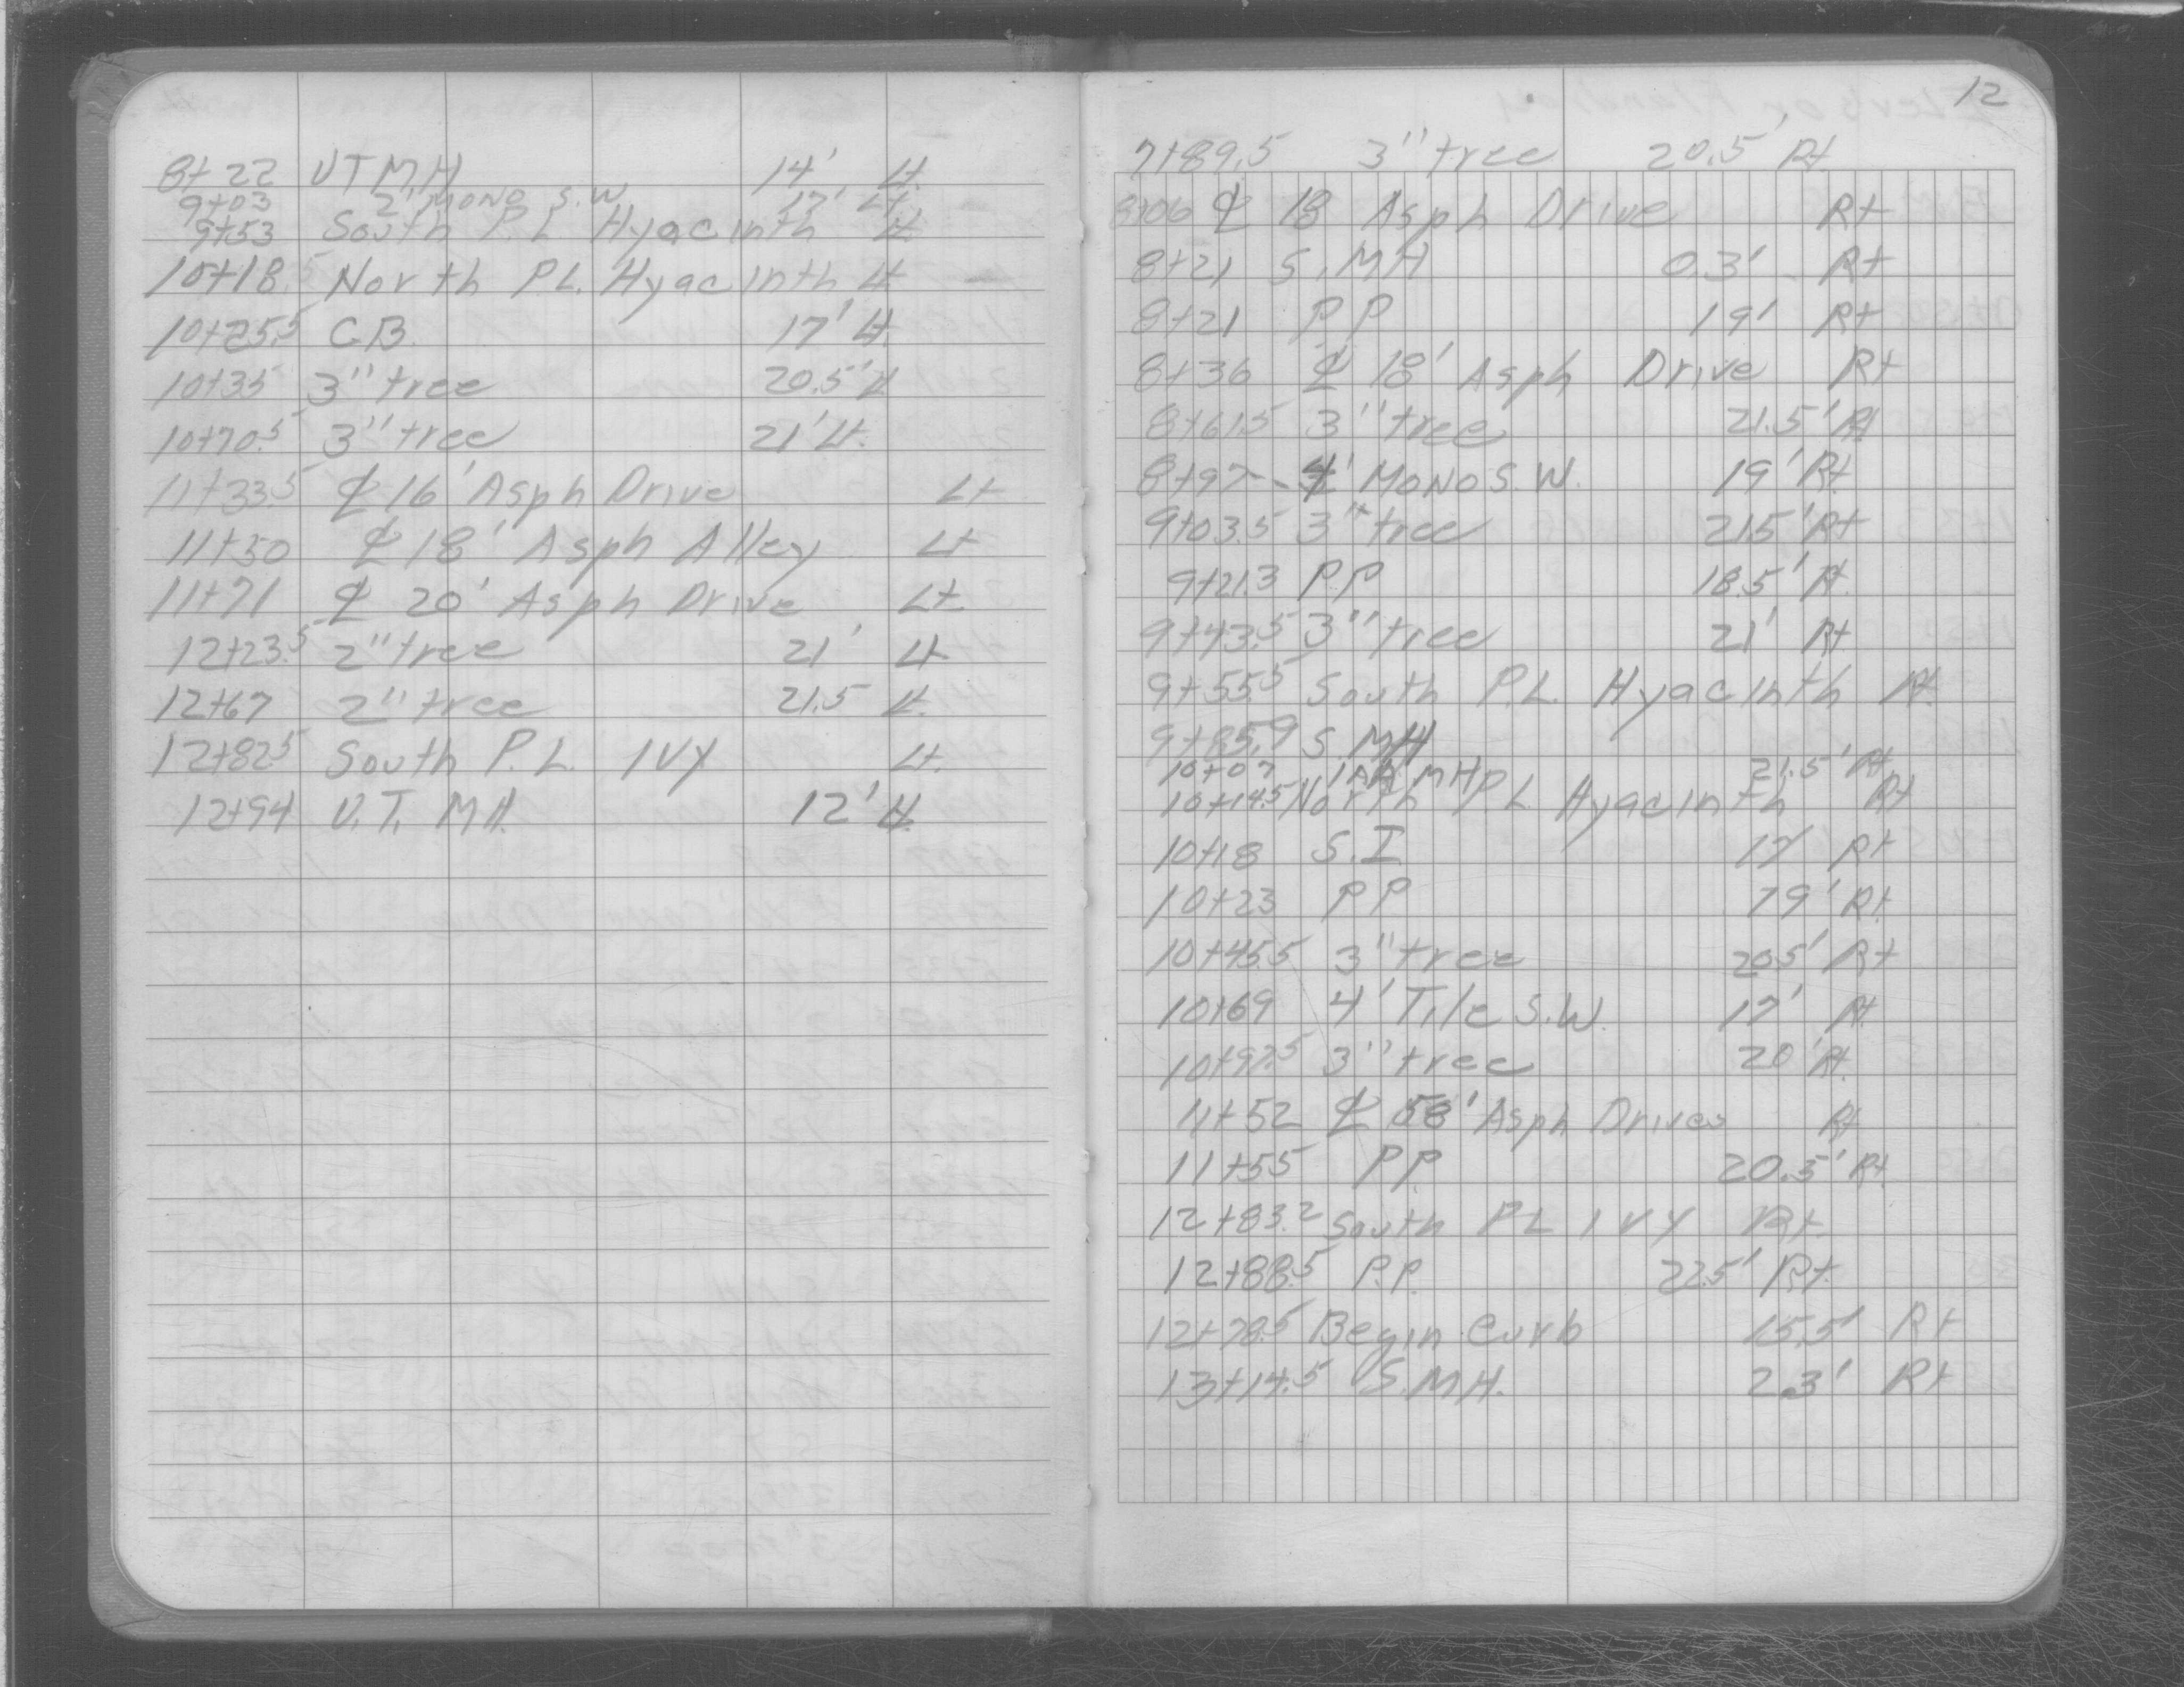 8+22 UTMH 14' Lt.
9+03 2' MONO S.W 17' Lt.
9+53 South P.L Hyacinth Lt.
10+18.5 North P.L. Hyacinth Lt
10+25.5 C.B. 17' Lt.
10+35 3" tree 20.5' Lt
10+70.5 3" tree 21' Lt.
11+33.5 ℄ 16' Asph Drive Lt
11+50 ℄ 18' Asph Alley Lt
11+71 ℄ 20' Asph Drive Lt.
12+23.5 2" tree 21' Lt
12+67 2" tree 21.5 Lt.
12+82.5 South P.L. IVY Lt.
12+94 U.T. MH. 12' Lt.
12
7+89.5 3" tree 20.5' Rt.
8+06 ℄ 18 Asph Drive Rt
8+21 S.MH 0.3' Rt
8+21 P.P 19' Rt
8+36 ℄ 18' Asph Drive Rt
8+61.5 3" tree 21.5' Rt
8+97 4' MONO S.W. 19' Rt.
9+03.5 3" tree 21.5' Rt
9+21.3 P.P 18.5' Rt.
9+43.5 3" tree 21' Rt
9+55.5 South P.L. Hyacinth Rt.
9+85.9 S MH
10+07 MH 21.5' Rt.
10+14.5 North P.L Hyacinth Rt
10+18 S.I. 17' Rt
10+23 P.P 19' Rt.
10+45.5 3" tree 20.5' Rt
10+69 4' Tile S.W. 17' Rt.
10+97.5 3" tree 20' Rt.
11+52 ℄ 58' Asph Drives Rt
11+55 P.P. 20.5' Rt.
12+83.2 South P.L IVY Rt.
12+88.5 P.P. 22.5' Rt.
12+78.5 Begin Curb 15.5' Rt
13+14.5 S.MH. 2.3' Rt